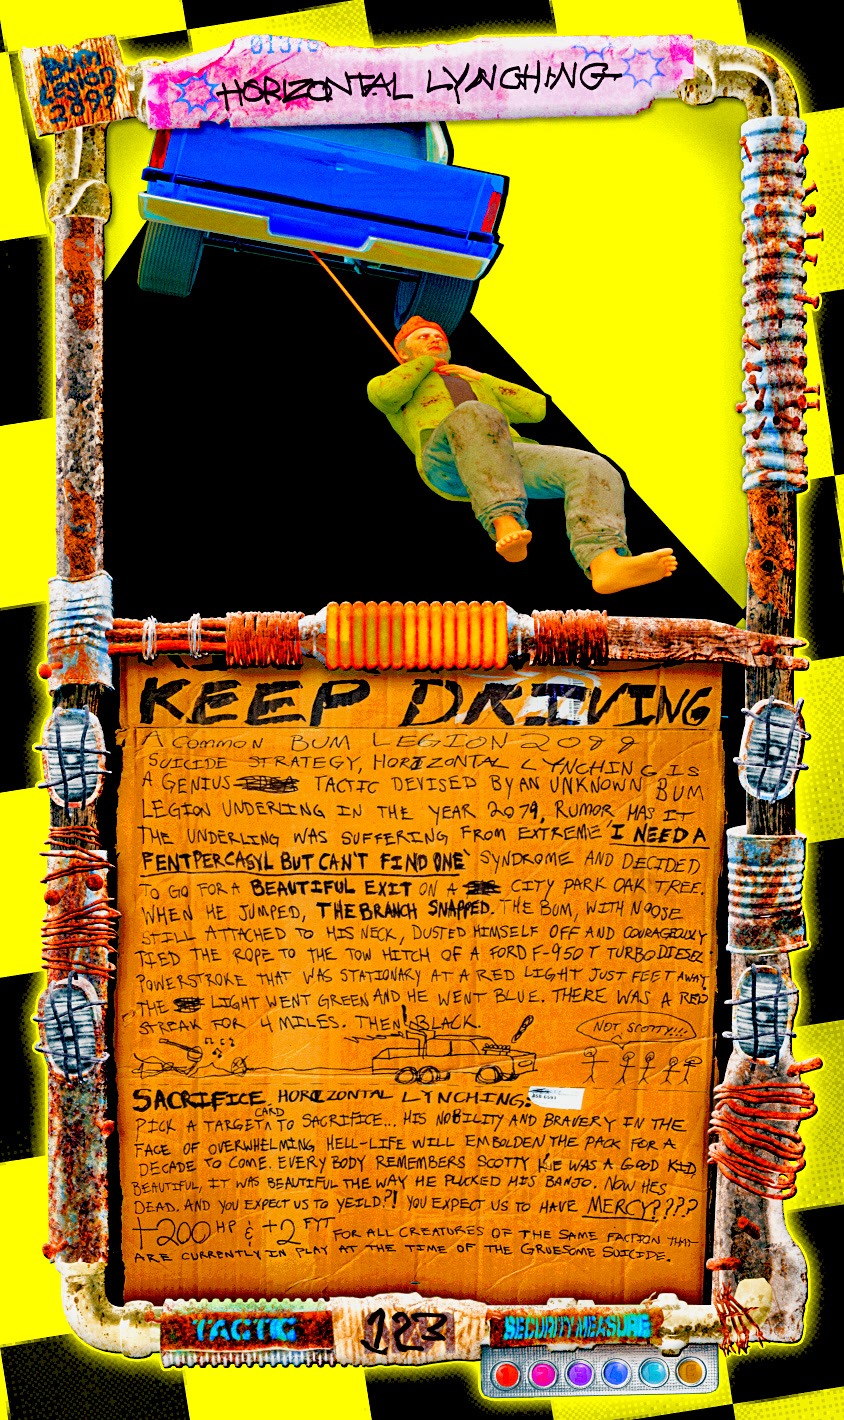 01376
BUM
LEGION
2099
HORIZONTAL LYNCHING
KEEP DRIVING
A COMMON BUM LEGION 2099
SUICIDE STRATEGY, HORIZONTAL LYNCHING IS
A GENIUS TACTIC DEVISED BY AN UNKNOWN BUM
LEGION UNDERLING IN THE YEAR 2079, RUMOR HAS IT
THE UNDERLING WAS SUFFERING FROM EXTREME 'I NEED A
FENTPERCASYL BUT CAN'T FIND ONE' SYNDROME AND DECIDED
TO GO FOR A BEAUTIFUL EXIT ON A CITY PARK OAK TREE.
WHEN HE JUMPED, THE BRANCH SNAPPED. THE BUM, WITH NOOSE
STILL ATTACHED TO HIS NECK, DUSTED HIMSELF OFF AND COURAGEOUSLY
TIED THE ROPE TO THE TOW HITCH OF A FORD F-950 T TURBO DIESEL
POWERSTROKE THAT WAS STATIONARY AT A RED LIGHT JUST FEET AWAY,
THE LIGHT WENT GREEN AND HE WENT BLUE. THERE WAS A RED
STREAK FOR 4 MILES. THEN BLACK.
NOT, SCOTTY!!!!
SACRIFICE HORIZONTAL LYNCHING:
PICK A TARGET CARD TO SACRIFICE... HIS NOBILITY AND BRAVERY IN THE
FACE OF OVERWHELMING HELL-LIFE WILL EMBOLDEN THE PACK FOR A
DECADE TO COME. EVERYBODY REMEMBERS SCOTTY. HE WAS A GOOD KID,
BEAUTIFUL, IT WAS BEAUTIFUL THE WAY HE PLUCKED HIS BANJO. NOW HES
DEAD. AND YOU EXPECT US TO YEILD?! YOU EXPECT US TO HAVE MERCY????
+200 HP & +2 FYT FOR ALL CREATURES OF THE SAME FACTION THAT
ARE CURRENTLY IN PLAY AT THE TIME OF THE GRUESOME SUICIDE.
TACTIC
123
SECURITY MEASURE